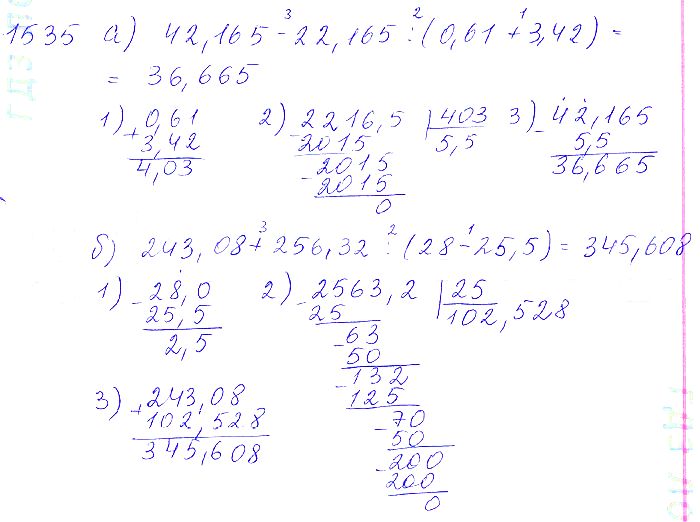 1535 а) 42,165 - 22,165 : (0,61 + 3,42) =
3 2 1
= 36,665
1) + 0,61
3,42
4,03
2) - 2216,5 | 403
2015 5,5
- 2015
2015
0
3) - 42,165
5,5
36,665
б) 243,08 + 256,32 : (28 - 25,5) = 345,608
3 2 1
1) - 28,0
25,5
2,5
2) - 2563,2 | 25
25 102,528
- 63
50
- 132
125
- 70
50
- 200
200
0
3) + 243,08
102,528
345,608